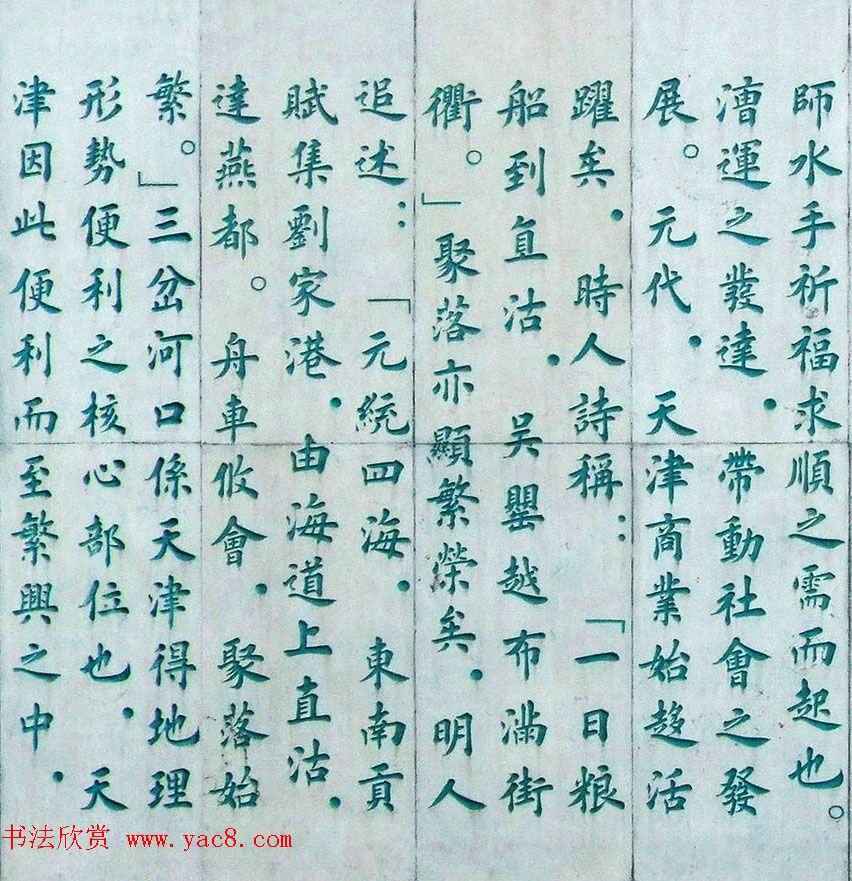 師水手祈福求順之需而起也。
漕運之發達.帶動社會之發
展。元代.天津商業始趨活
躍矣.時人詩稱：「一日粮
船到直沽.吴罌越布滿街
衢。」聚落亦顯繁榮矣.明人
追述：「元統四海.東南貢
賦集劉家港.由海道上直沽.
達燕都。舟車攸會.聚落始
繁。」三岔河口係天津得地理
形勢便利之核心部位也.天
津因此便利而至繁興之中.
书法欣赏 www.yac8.com